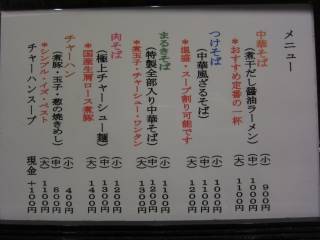 メニュー
中華そば
（煮干だし醤油ラーメン）
＊おすすめ定番の一杯
（小） 900円
（中） 1000円
（大） 1100円
つけそば
（中華風ざるそば）
＊塩盛・スープ割り可能です
（小） 1000円
（中） 1100円
（大） 1200円
まるきそば
（特製全部入り中華そば）
＊煮玉子・チャーシュー・ワンタン
（小） 1100円
（中） 1200円
（大） 1300円
肉そば
（極上チャーシュー麺）
＊国産生肩ロース煮豚
（小） 1200円
（中） 1300円
（大） 1400円
チャーハン
（煮豚・玉子・葱の焼きめし）
＊シンプル・イズ・ベスト
（小） 400円
（中） 800円
（大） 1100円
チャーハンスープ
現金 +100円